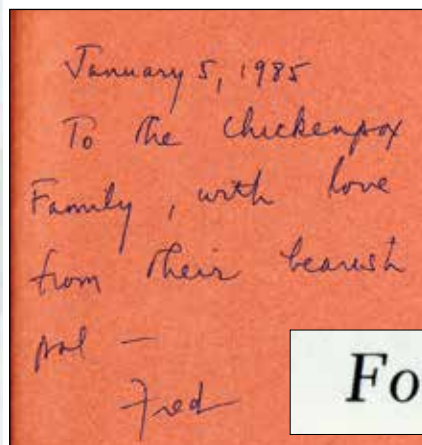 January 5, 1985
To the Chickenpox
Family, with love
from their bearish
pal —
Fred
Fo